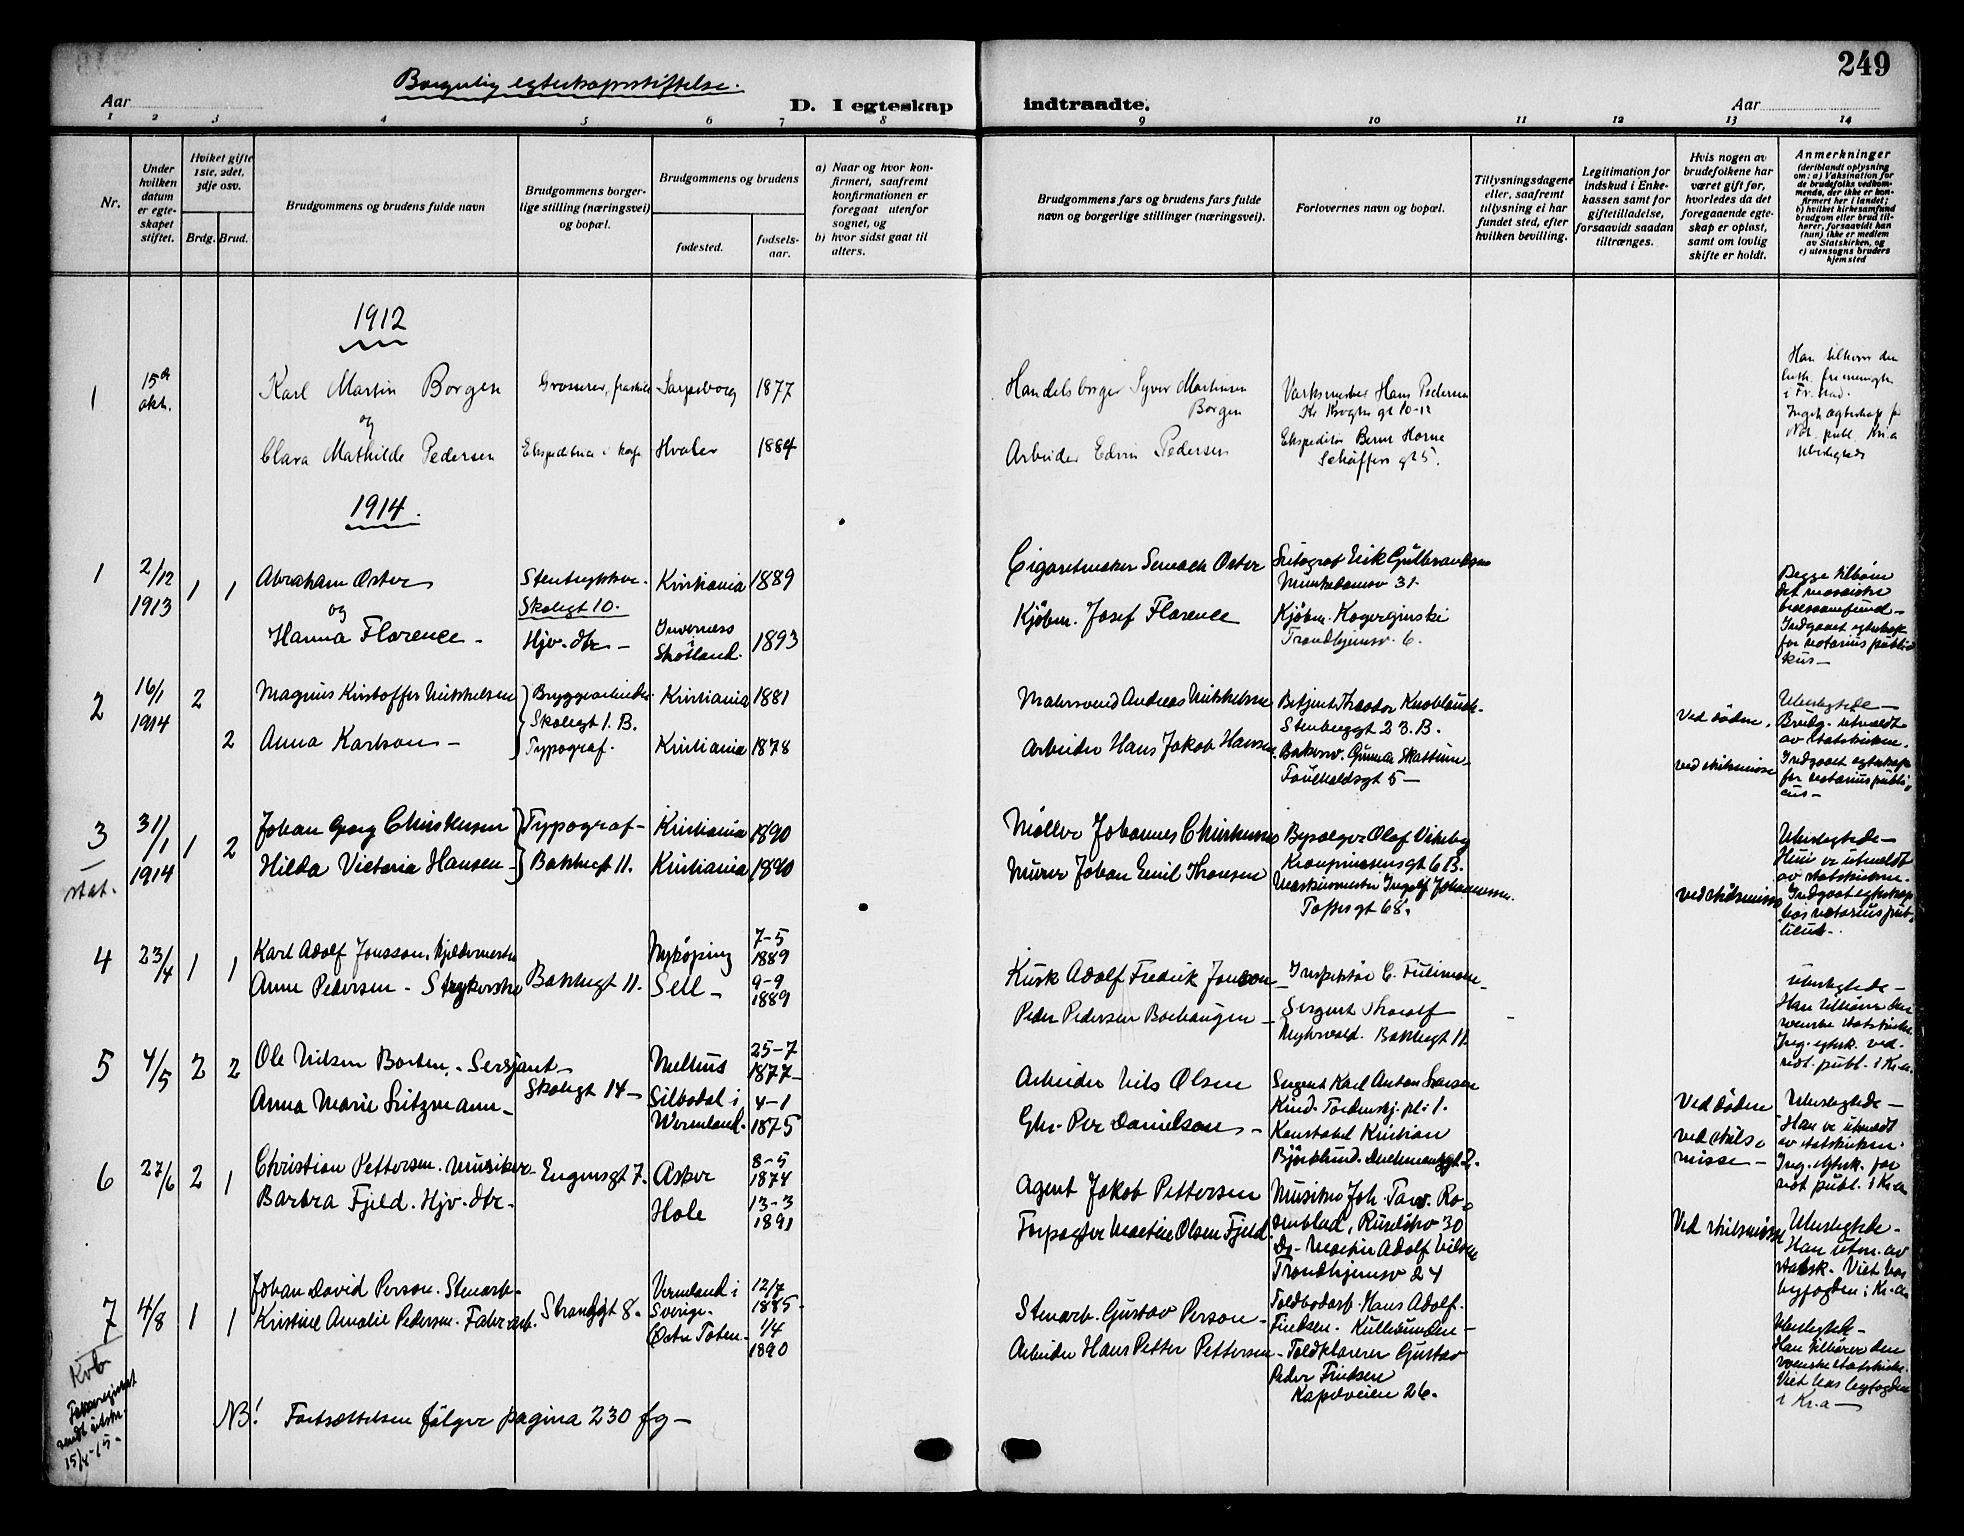 249
Borgerlig egteskapsstiftelse.
Aar
D. I egteskap
indtraadte.
Aar
1 2 3 4 5 6 7 8 9 10 11 12 13 14
Nr.
Under hvilken datum er egteskapet stiftet.
Hvilket gifte 1ste, 2det, 3dje osv.
Brdg. Brud.
Brudgommens og brudens fulde navn
Brudgommens borgerlige stilling (næringsvei) og bopæl.
Brudgommens og brudens
fødested.
fødselsaar.
a) Naar og hvor konfirmert, saafremt konfirmationen er foregaat utenfor sognet, og
b) hvor sidst gaat til alters.
Brudgommens fars og brudens fars fulde navn og borgerlige stillinger (næringsvei).
Forlovernes navn og bopæl.
Tillysningsdagene eller, saafremt tillysning ei har fundet sted, efter hvilken bevilling.
Legitimation for indskud i Enkekassen samt for giftetilladelse, forsaavidt saadan tiltrænges.
Hvis nogen av brudefolkene har været gift før, hvorledes da det foregaaende egteskap er opløst, samt om lovlig skifte er holdt.
Anmerkninger
(deriblandt oplysning om: a) Vaksination for de brudefolks vedkommende, der ikke er konfirmert her i landet; b) hvilket kirkesamfund brudgom eller brud tilhører, forsaavidt han (hun) ikke er medlem av Statskirken, og c) utensogns bruders hjemsted
1912
1
15de okt.
Karl Martin Borgen
og
Clara Mathilde Pedersen
Grosserer,
Sarpsborg 1877
Hvaler 1884
Handelsborger Syver Martinsen Borgen
Arbeider Edvin Pedersen
Verksmester Hans Pedersen
Kr. Kroghs gt 10-12
Ekspeditør Bernt Horne
Schäffers gt 5.
Han tilhører den
luth. frimenigh.
i Fr.stad.
Not. publ. Kr.a
1914.
1
2/12 1913
1 1
Abraham Oster
og
Hanna Florence -
Skolegt 10.
Hjv. dtr -
Kristiania 1889
Inverness Skotland. 1893
Cigaretmaker Oster
Kjøbm. Josef Florence
Litograf Erik Gulbrandsen
Munkedamsv 31.
Kjøbm.
Trondhjemsv. 6.
Begge tilhører
det mosaiske
troessamfund -
Indgaaet egteskap
for notarius publi
kus -
2
16/1 1914
2
2
Magnus Kristoffer Mikkelsen
Anna Karlson -
Bryggeriarbeider
Skolegt 1. B.
Typograf.
Kristiania 1881
Kristiania 1878
Malersvend Andreas Mikkelsen
Arbeider Hans Jakob Hansen
Betjent Theodor Knoblauch
Stenberggt 23. B.
Bakersv. Gunnar Skattum
Ved døden.
ved skilsmisse
Ulovligtede -
Brudg. utmeldt
av Statskirken.
Indgaaet egteskap
for notarius publi
cus -
3
stat.
31/1 1914
1 2
Johan Georg Christensen
Hilda Victoria Hansen -
Typograf -
Bakkegt 11.
Kristiania 1890
Kristiania 1890
Møller Johannes Christensen
Murer Johan Emil Thoresen
Olaf Vikeby
Kronprinsensgt 6 B.
Maskinmester Ingolf Johannessen.
Toftesgt 68.
ved skilsmisse
Hun er utmeldt
av statskirken.
Indgaaet egteskap
hos notarius pub-
licus.
4
23/4
1 1
Karl Adolf Jonsson,
Anne Pedersen - Strykerske
Bakkegt 11.
Nyköping 7-5 1889
Sell - 9-9 1889
Kusk Adolf Fredrik Jonsson -
Peder Pedersen Bochaugen -
Sergent Thoralf
Myhrvold. Bakkegt 11
Han tilhører den
svenske statskirke.
Ing. egtesk. ved
not. publ. i Kr.a.
5
4/5
2 2
Ole Nilsen Borten. - Sersjant -
Anna Marie Litzmann -
Skolegt 14 -
Melhus 25-7 1877 -
Silbodal i Wermland. 4-1 1875
Arbeider Nils Olsen
Per Danielson -
Sergent Karl Anton Larsen
Konstabel Kristian
Björklund.
Ved døden
ved skils-
misse -
Han er utmeldt
av statskirken.
Ing. egtesk. for
not publ. i Kr.a
6
27/6
2 1
Christian Pettersen. Musiker -
Barbra Fjeld. Hjv. dtr.
Asker 8-5 1874
Hole 13-3 1891
Agent Jakob Pettersen
Forpagter Martin Olsen Fjeld.
Musiker Joh.
Ruseløkv 30
Martin Adolf Nilsen
Trondhjemsv 24
Ved skilsmisse
Han utm. av
statsk. Viet hos
byfogden i Kr.a.
7
4/8
1 1
Johan David Person. Stenarb.
Kristine Amalie Pedersen. Fabr. arb.
Strandgt 8.
Vermland i Sverige. 12/7 1885.
Østre Toten. 1/4 1890
Stenarb. Gustav Person -
Arbeider Hans Petter Pettersen -
Toldbodarb. Hans Adolf
Toldklarerer Gustav
Peder Fredsen
Kapelveien 26.
Han tilhører den
svenske statskirke.
Viet hos byfogden
i Kr.a -
Krb
15/4-15.
NB! Fortsættelsen følger pagina 230 fg -